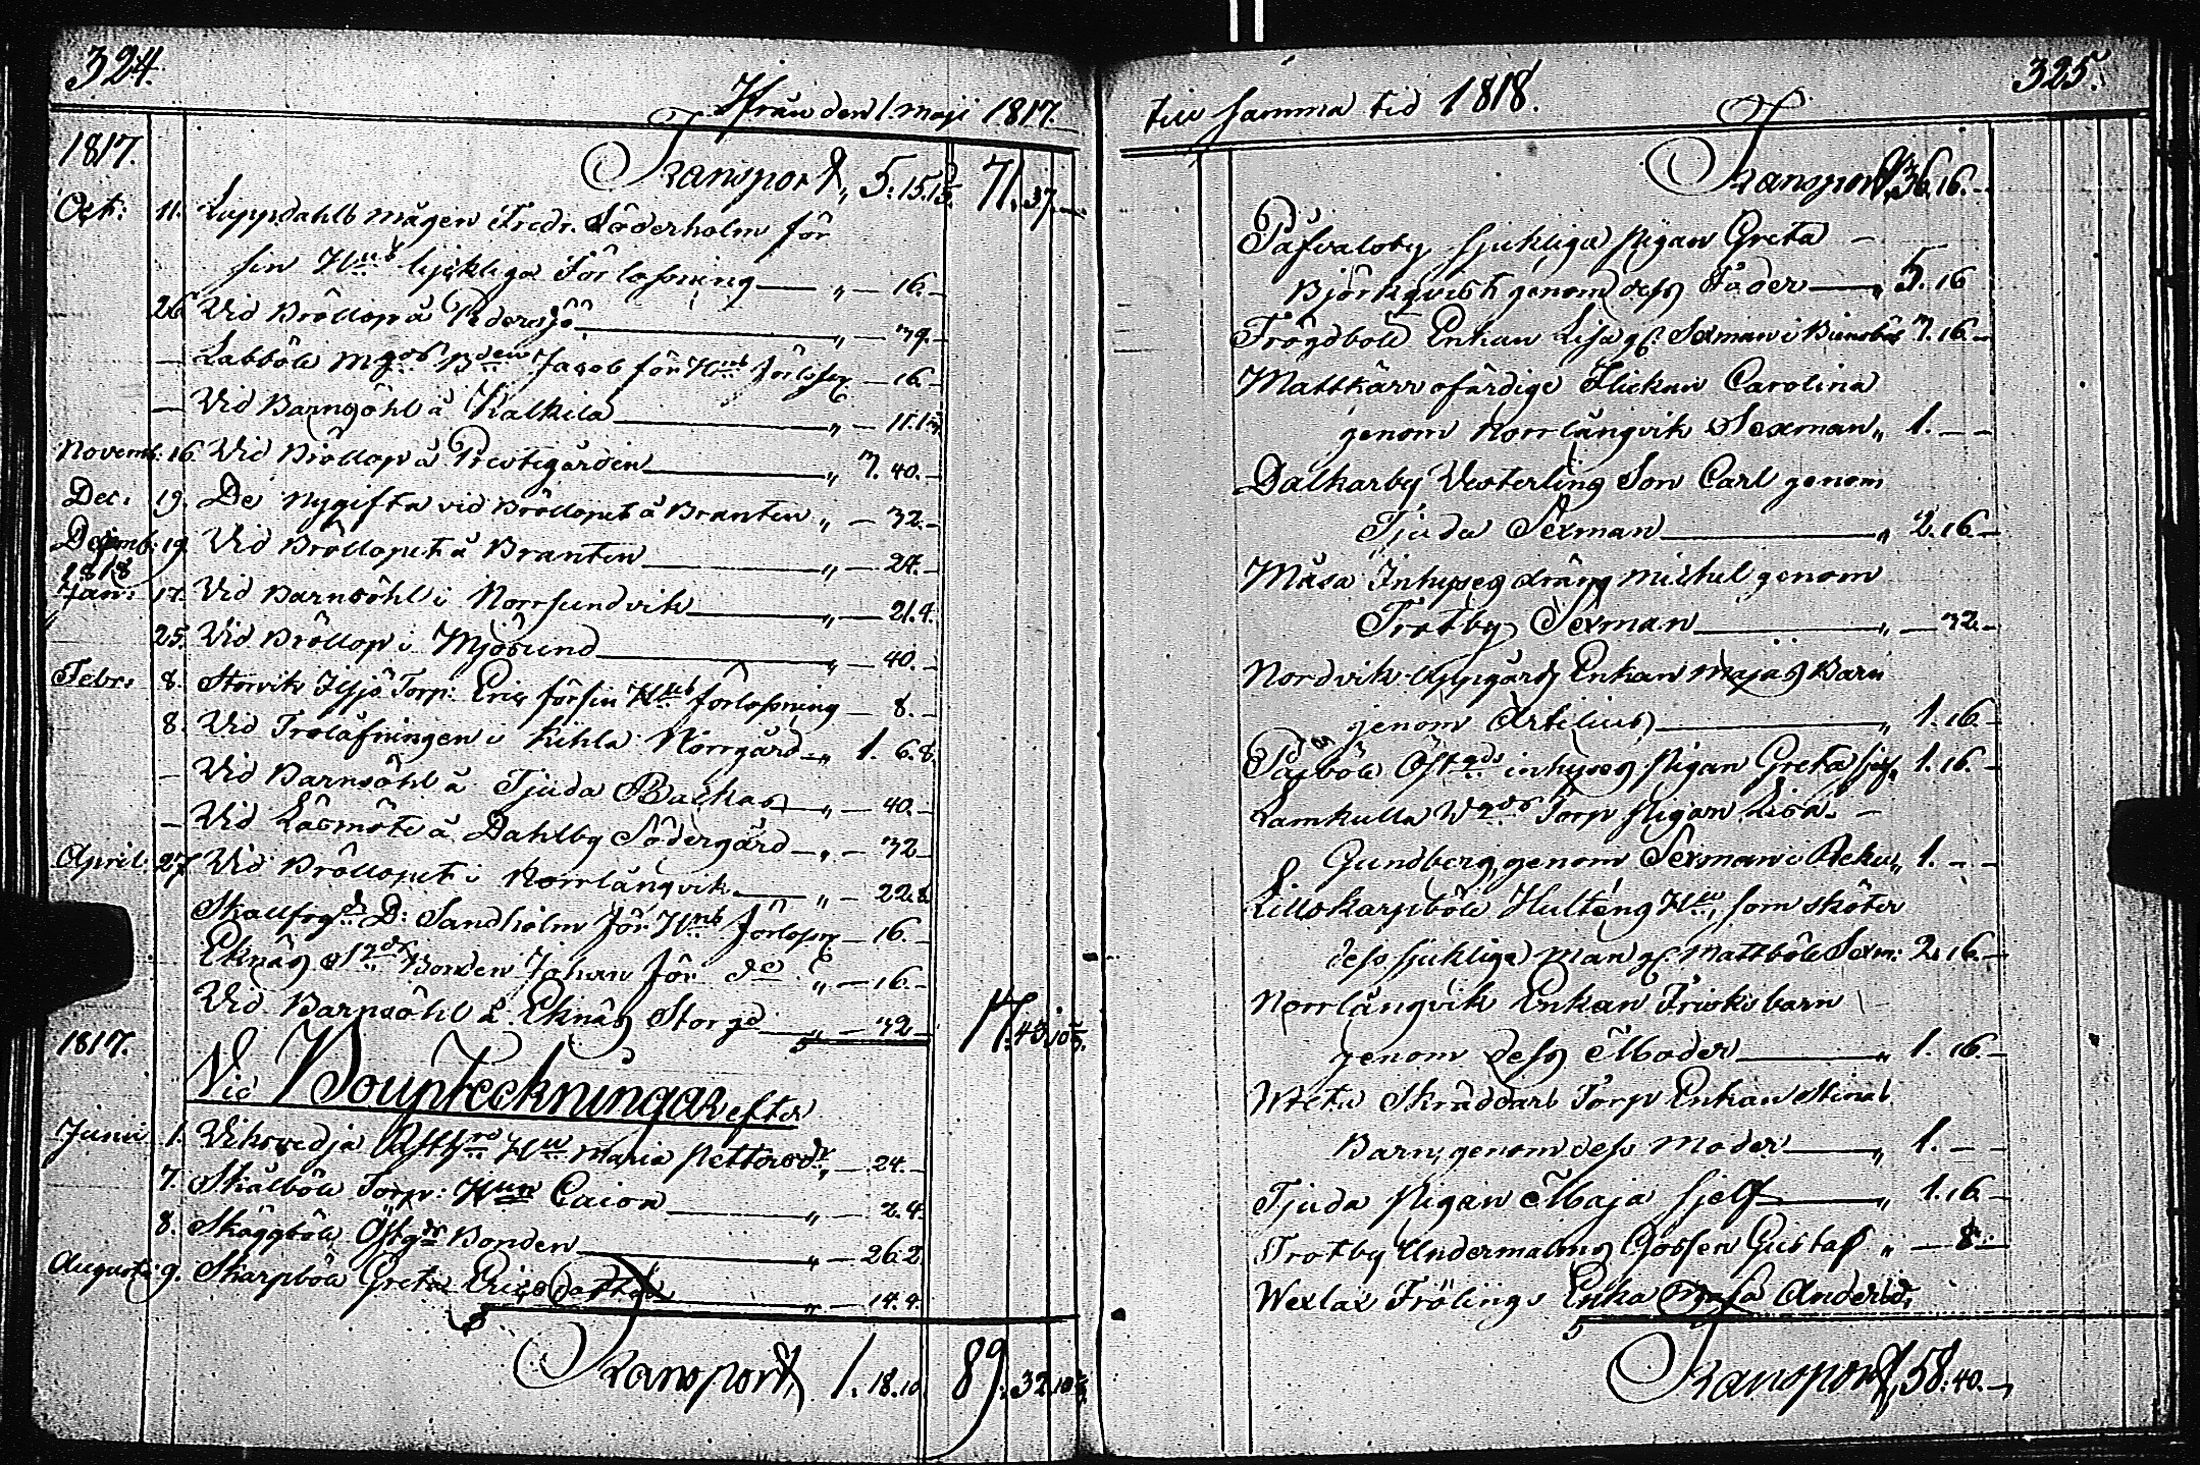 324.
Ifrån den 1. maji 1817.
1817.
Transport, 5. 15. 71. 37. —
Oct: 11. Luppdahls mågen Fredr. Söderholm för
sin H. lyckliga Förlossning — „ — 16. —
26. Vid Bröllop å Pedersjö — „ — 39. —
— Labböle Jacob för — 16. —
— Vid Barnsöhl å Kalkila — „ — 11.
Novemb: 16. Vid Bröllop å Prestegården — „ 7. 40. —
Dec: 19. De Nygifta vid Bröllopet å Branten „ — 32. —
19. Vid Bröllopet å Branten — „ — 24. —
1818
Jan: 17. Vid Barnsöhl i Norrsundvik — „ — 21. 4.
25. Vid Bröllop i Mjösund — „ — 40. —
Febr: 8. Storvik Ilsjö Torp: Eric för sin förlossning — 8. —
8. Vid Trolåfningen i Kihla Norrgård — „ 1. 6. 8.
— Vid Barnsöhl å Tjuda Backas — „ — 40. —
— Vid Läsmöte å Dahlby Södergård — „ — 32 —
April: 27. Vid Bröllopet i Norrlångvik — „ — 22. 8.
D: Sandholm för — 16. —
Eknäs Bonden Johan för „ — 16. —
Vid Barnsöhl å Eknäs Storgd — „ — 32 — 17. 43.
1817.
Vid Boupteckningar efter
Junii 1. Viksvedja Maria — „ — 24. —
7. Skålböle Torp: Caisa — „ — 2. 4.
8. Skäggböle Östg: Bonden — „ — 26. 2.
Augusti 9. Skarpböle Greta Ericsdotter — „ — 14. 4.
Transport, 1. 18. 10. 89. 32.
325.
till samma tid 1818.
Transport, 36. 16. —
Påfvalsby sjukliga Pigan Greta —
Björkqvist genom dess Fader — „ 5. 16
Frögdböle Enkan Lisa gm Sexman i 7. 16. —
Mattkärr ofärdige Flickan Carolina
genom Norrlångvik Sexman „ 1. — —
Dalkarby Vesterlings Son Carl genom
Tjuda Sexman — „ 2. 16. —
Måsa Inhyses dräng Michel genom
Trotby Sexman — „ — 32. —
Nordvik Uppgårds Enkan Majas Barn
genom — „ 1. 16 —
Pajböle Östgds inhyses Pigan Greta sj. 1. 16. —
Lamkulla Torp Pigan Lisa —
Gundberg, genom Sexman i Reku „ 1. — —
Lillskarpböle Hulténs som sköter
dess sjukliga man gm Mattböle Sexm: 2. 16. —
Norrlångvik Enkan Frisks barn
genom dess Moder — „ 1. 16. —
Wreta Skräddars Torp Enkan Stinas
Barn, genom dess Moder — „ 1. — —
Tjuda Pigan Maja sjelf — „ 1. 16. —
Trotby Undermalms Gossen Gustaf „ — 8. —
Wexlax Frölings Enka Maja Andersd:
Transport, 58. 40. —